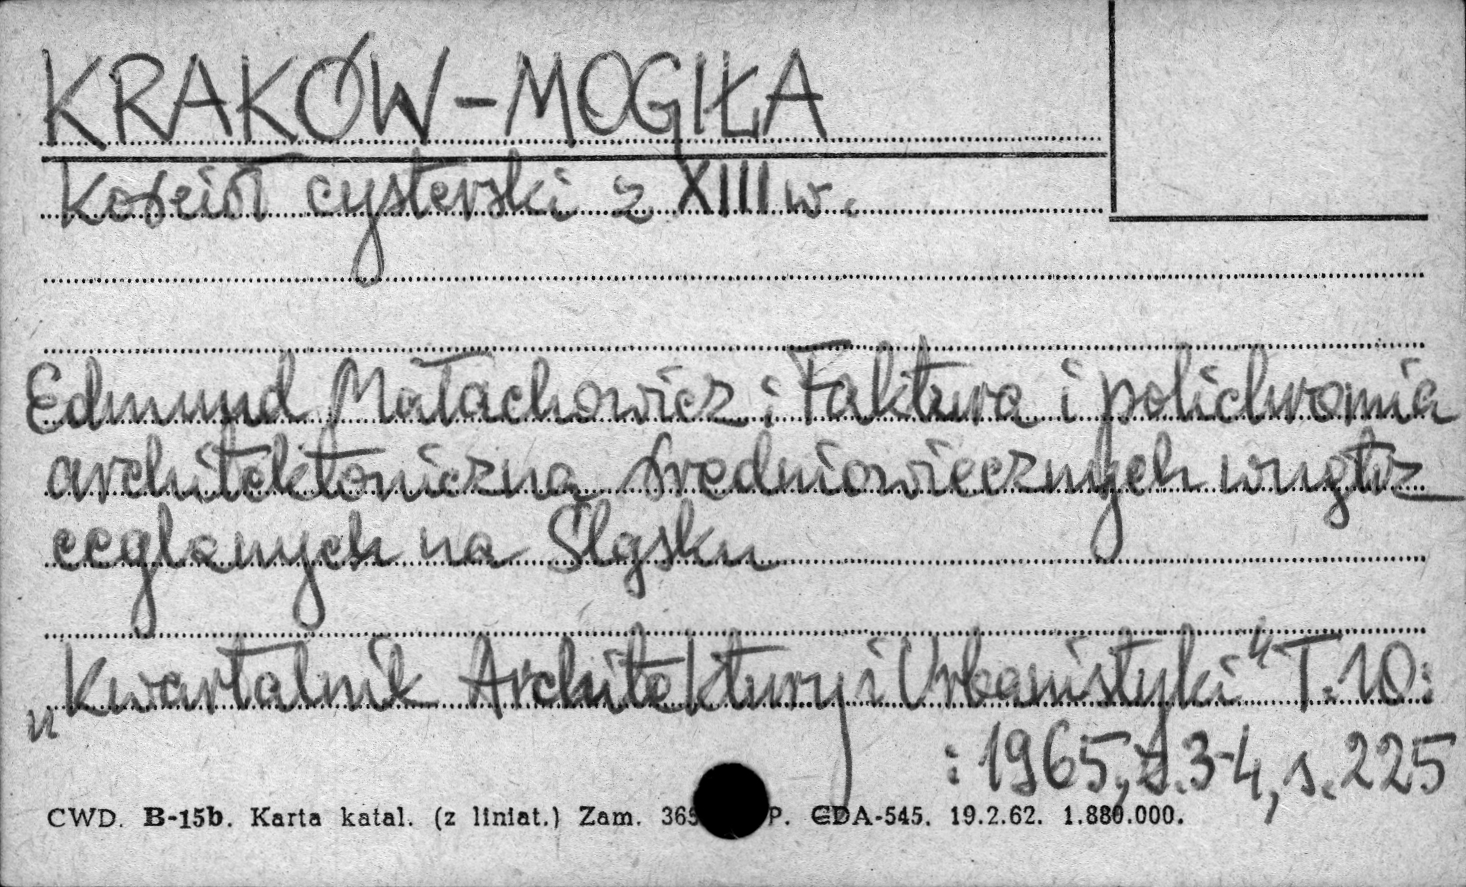 KRAKÓW-MOGIŁA
Kościół cysterski z XIII w.
Edmund Małachowicz: Faktura i polichromia
architektoniczna średniowiecznych wnętrz
ceglanych na Śląsku
„Kwartalnik Architektury i Urbanistyki" T.10:
:1965, z.3-4, s.225
CWD. B-15b. Karta katal. (z liniat.) Zam. 365 P. CDA-545. 19.2.62. 1.880.000.